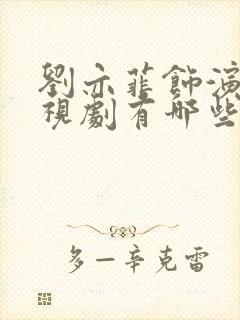 劉亦菲飾演
視劇有哪些
多一辛克雷